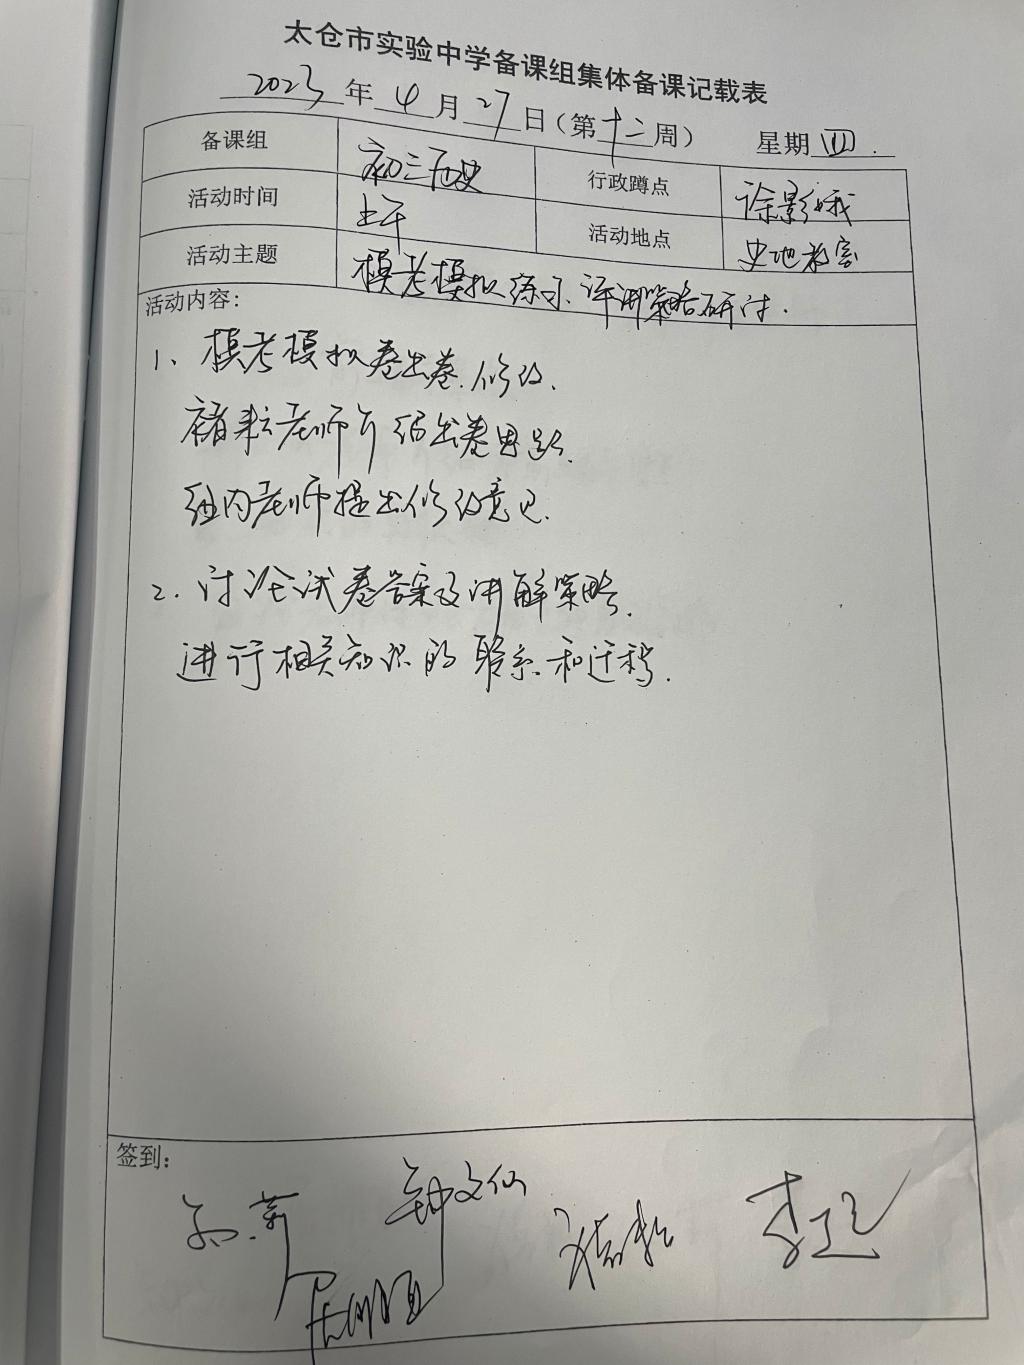 太仓市实验中学备课组集体备课记载表
2023年4月27日(第十二周) 星期四.
备课组 初三历史 行政蹲点 徐影娥
活动时间 上午 活动地点 史地教室
活动主题 模考模拟练习、评讲策略研讨.
活动内容:
1、模考模拟卷出卷.修改.
老师介绍出卷思路.
组内老师提出修改意见.
2.讨论试卷答案及讲解策略.
进行相关知识的联系和迁移.
签到:
钟文仙